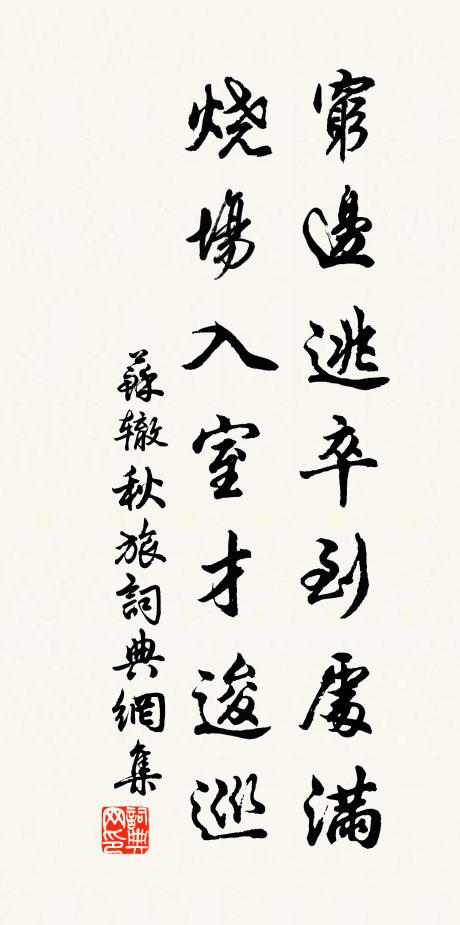 窮邊逃卒到處滿
烧場入室才逡巡
蘇辙秋旅詞典網集
詞典网印